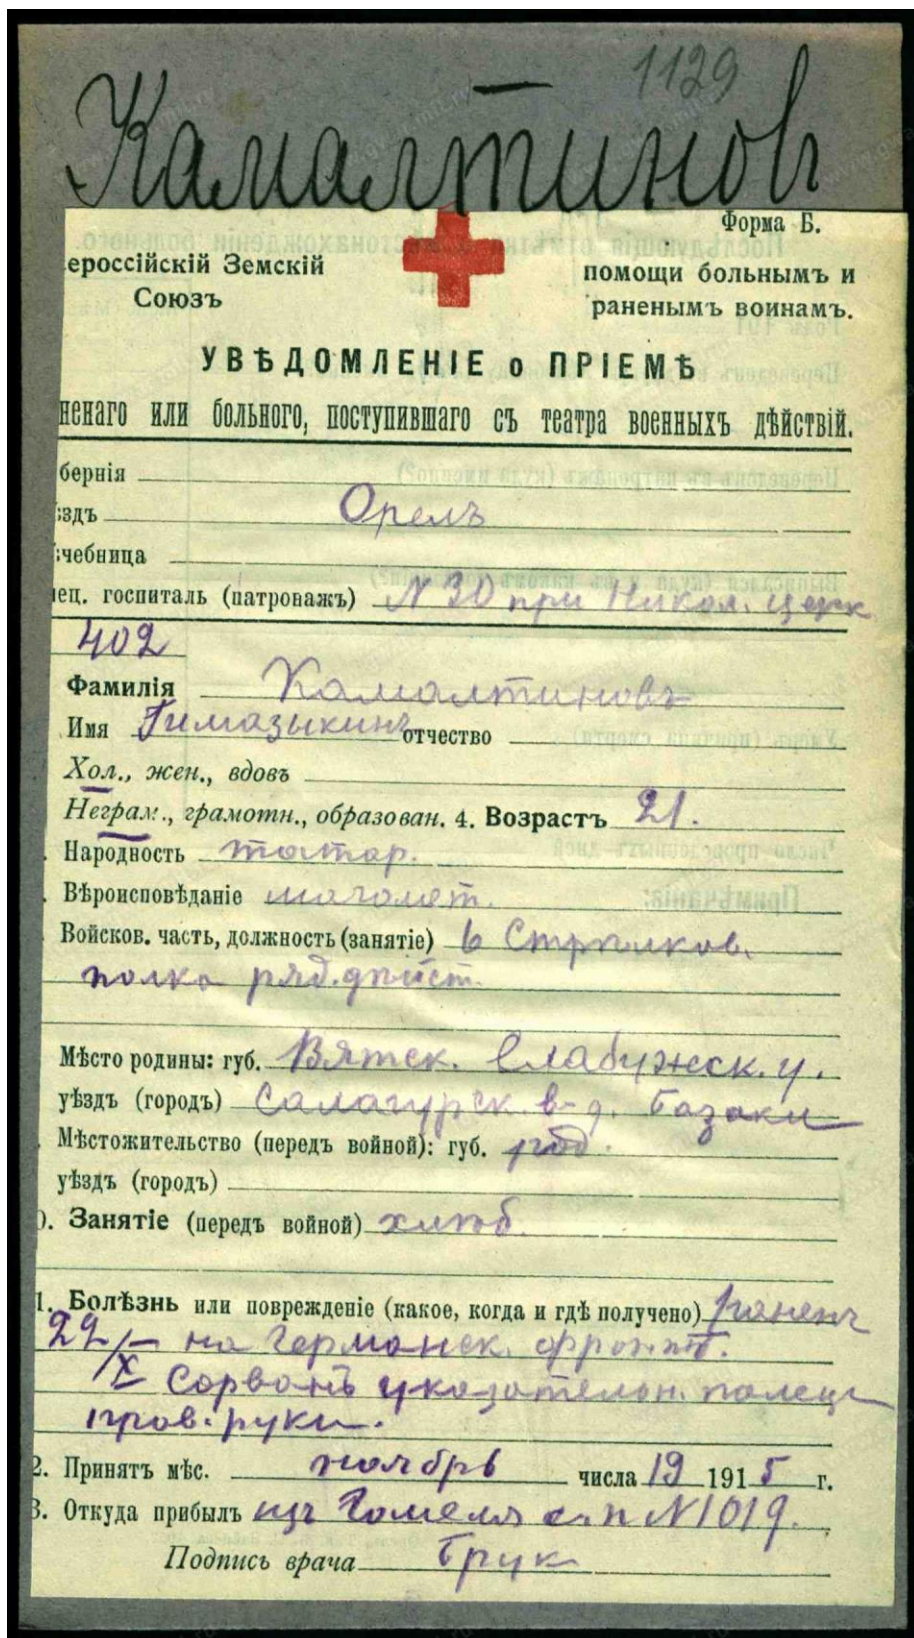 1129
Камалтинов
Форма Б.
ероссійскій Земскій
Союзъ
помощи больнымъ и
раненымъ воинамъ.
УВѢДОМЛЕНІЕ о ПРІЕМѢ
ненаго или больного, поступившаго съ театра военныхъ дѣйствій.
бернія
ѣздъ Орелъ
ечебница
пец. госпиталь (патронажъ) N 30 при Никол. церк
402
Фамилія Камалтиновъ
Имя Гимазыкинъ отчество
Хол., жен., вдовъ
Неграм., грамотн., образован. 4. Возрастъ 21.
Народность татар.
Вѣроисповѣданіе магомет.
Войсков. часть, должность (занятіе) 6 Стрѣлков.
полка ряд. дѣйст.
Мѣсто родины: губ. Вятск. Елабужск. у.
уѣздъ (городъ) Салагурск. в. д. Базаки
Мѣстожительство (передъ войной): губ.
уѣздъ (городъ)
0. Занятіе (передъ войной) хлѣб.
1. Болѣзнь или поврежденіе (какое, когда и гдѣ получено) раненъ
29/X на Германск. фронтѣ.
Сорванъ указательн. палецъ
прав. руки.
2. Принятъ мѣс. ноябрь числа 19 1915 г.
3. Откуда прибылъ изъ Гомеля с. п N 1019.
Подпись врача Брук